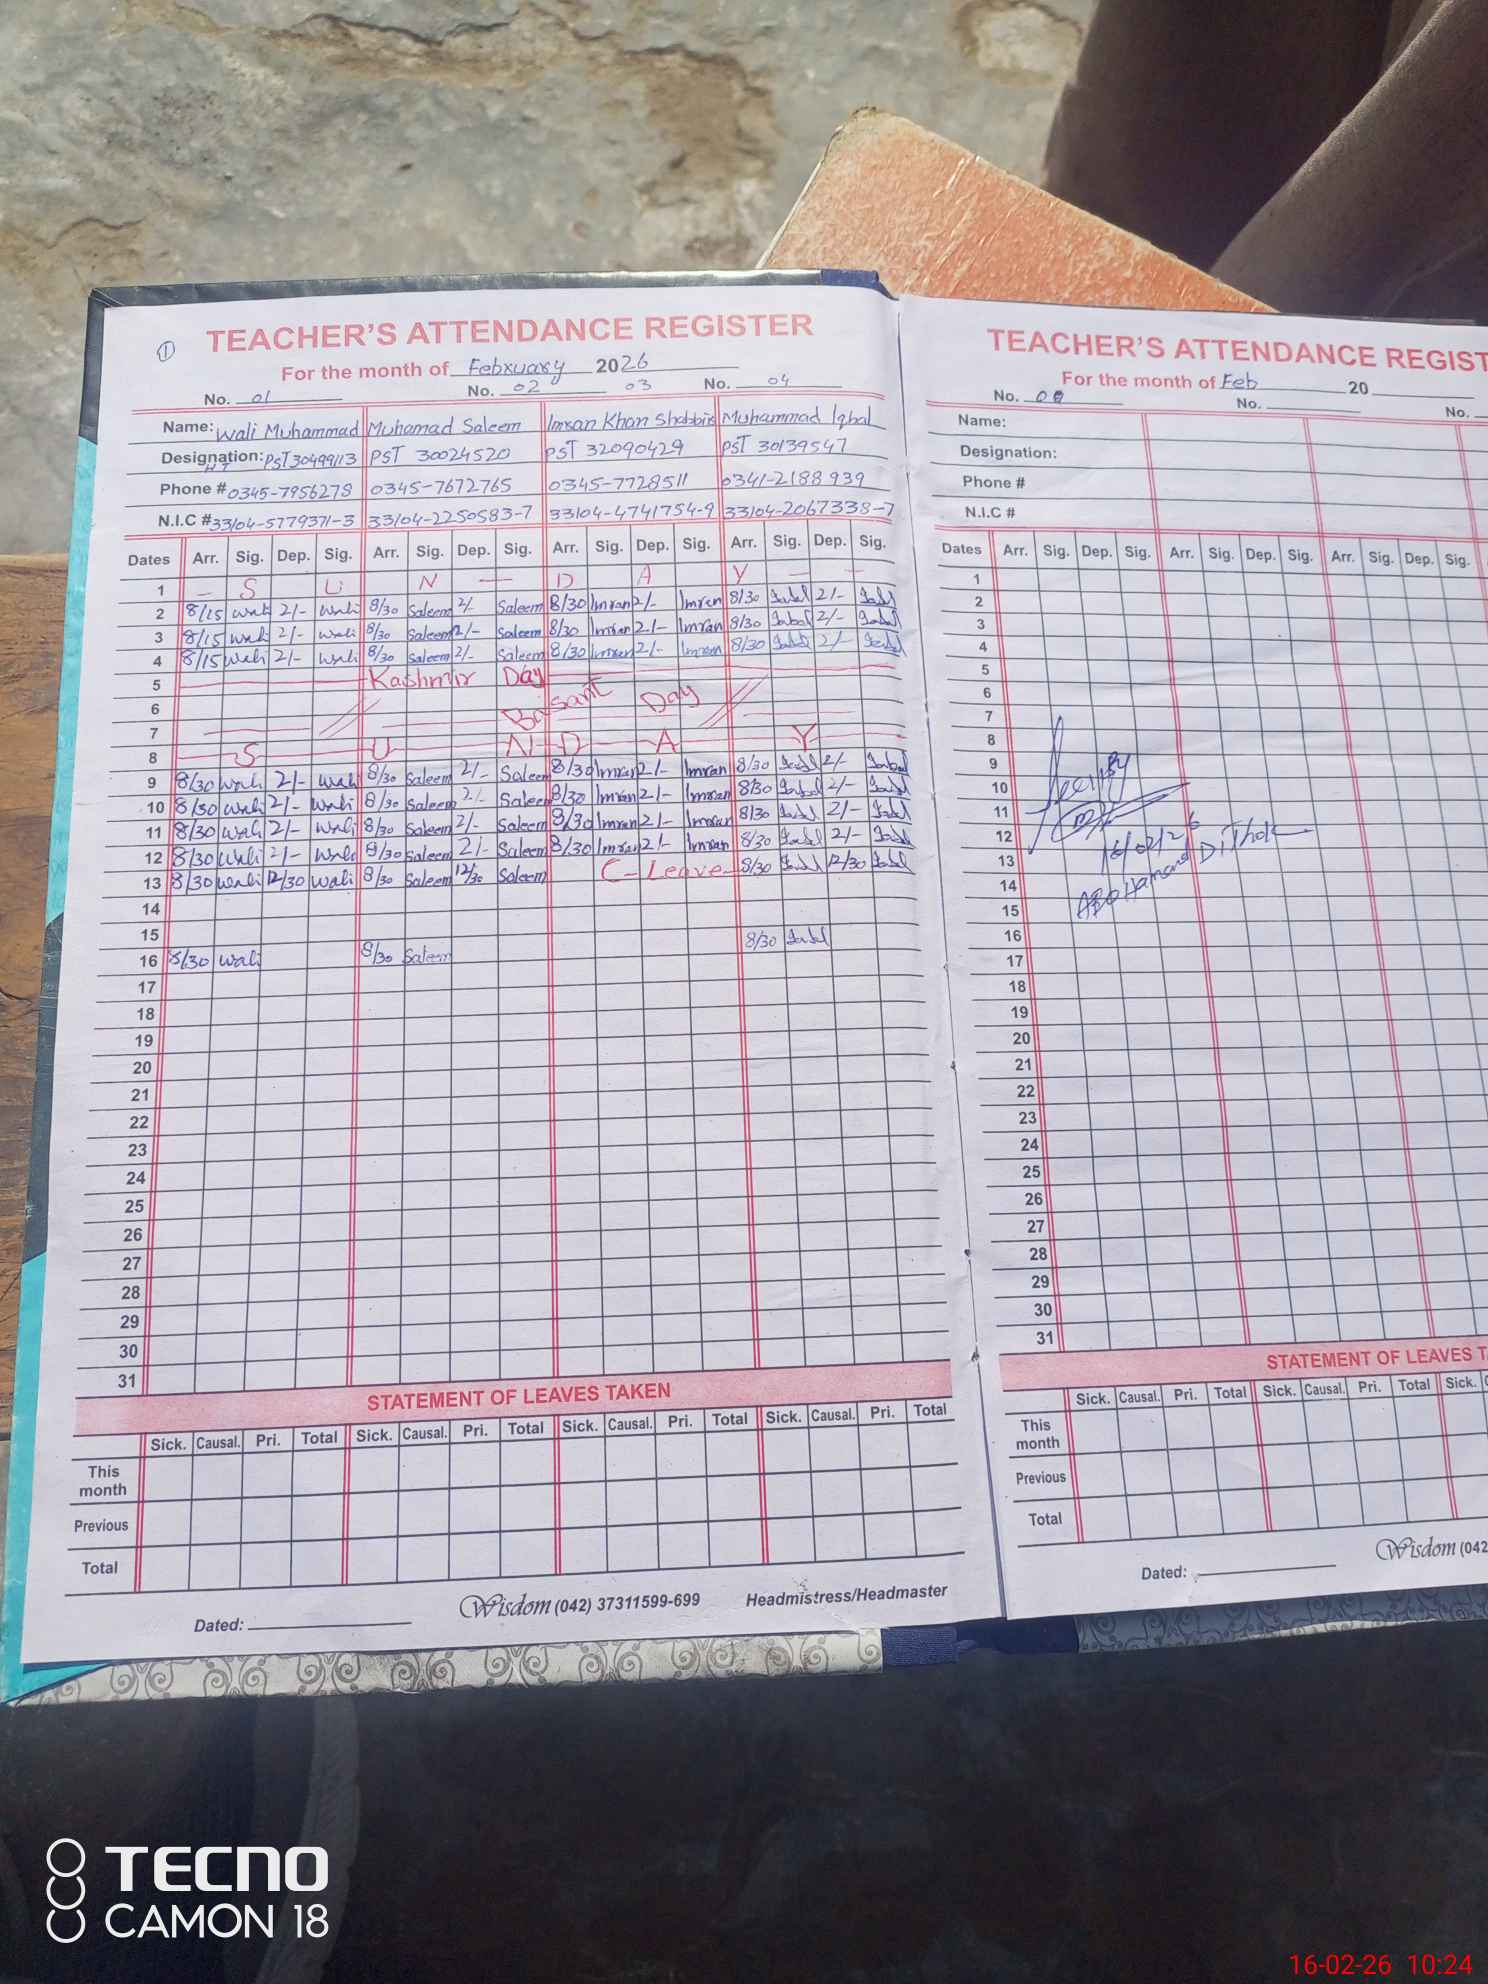 ①
TEACHER'S ATTENDANCE REGISTER
For the month of February 2026
No. 01 No. 02 03 No. 04
Name: Wali Muhammad Muhamad Saleem Imran Khan Shabbir Muhammad Iqbal
Designation: HT PST 30499113 PST 30024520 PST 32090429 PST 30139547
Phone # 0345-7956278 0345-7672765 0345-7728511 0341-2188939
N.I.C # 33104-5779371-3 33104-2250583-7 33104-4741754-9 33104-2067338-7
Dates Arr. Sig. Dep. Sig. Arr. Sig. Dep. Sig. Arr. Sig. Dep. Sig. Arr. Sig. Dep. Sig.
1 – S U N — D A Y – –
2 8/15 Wali 2/- Wali 8/30 Saleem 2/- Saleem 8/30 Imran 2/- Imran 8/30 Iqbal 2/- Iqbal
3 8/15 Wali 2/- Wali 8/30 Saleem 2/- Saleem 8/30 Imran 2/- Imran 8/30 Iqbal 2/- Iqbal
4 8/15 Wali 2/- Wali 8/30 Saleem 2/- Saleem 8/30 Imran 2/- Imran 8/30 Iqbal 2/- Iqbal
5 Kashmir Day
6 Basant Day
7
8 S U N D A Y
9 8/30 Wali 2/- Wali 8/30 Saleem 2/- Saleem 8/30 Imran 2/- Imran 8/30 Iqbal 2/- Iqbal
10 8/30 Wali 2/- Wali 8/30 Saleem 2/- Saleem 8/30 Imran 2/- Imran 8/30 Iqbal 2/- Iqbal
11 8/30 Wali 2/- Wali 8/30 Saleem 2/- Saleem 8/30 Imran 2/- Imran 8/30 Iqbal 2/- Iqbal
12 8/30 Wali 2/- Wali 8/30 Saleem 2/- Saleem 8/30 Imran 2/- Imran 8/30 Iqbal 2/- Iqbal
13 8/30 Wali 12/30 Wali 8/30 Saleem 12/30 Saleem C-Leave 8/30 Iqbal 12/30 Iqbal
14
15
16 8/30 Wali 8/30 Saleem 8/30 Iqbal
17
18
19
20
21
22
23
24
25
26
27
28
29
30
31
STATEMENT OF LEAVES TAKEN
Sick. Causal. Pri. Total Sick. Causal. Pri. Total Sick. Causal. Pri. Total Sick. Causal. Pri. Total
This month
Previous
Total
Dated: Wisdom (042) 37311599-699 Headmistress/Headmaster
TEACHER'S ATTENDANCE REGIST
For the month of Feb 20
No. No. No.
Name:
Designation:
Phone #
N.I.C #
Dates Arr. Sig. Dep. Sig. Arr. Sig. Dep. Sig. Arr. Sig. Dep. Sig.
1
2
3
4
5
6
7
8
9
10
11
12
13
14
15
16
17
18
19
20
21
22
23
24
25
26
27
28
29
30
31
16/02/26
STATEMENT OF LEAVES T
Sick. Causal. Pri. Total Sick. Causal. Pri. Total Sick.
This month
Previous
Total
Dated: Wisdom (042
TECNO
CAMON 18
16-02-26 10:24